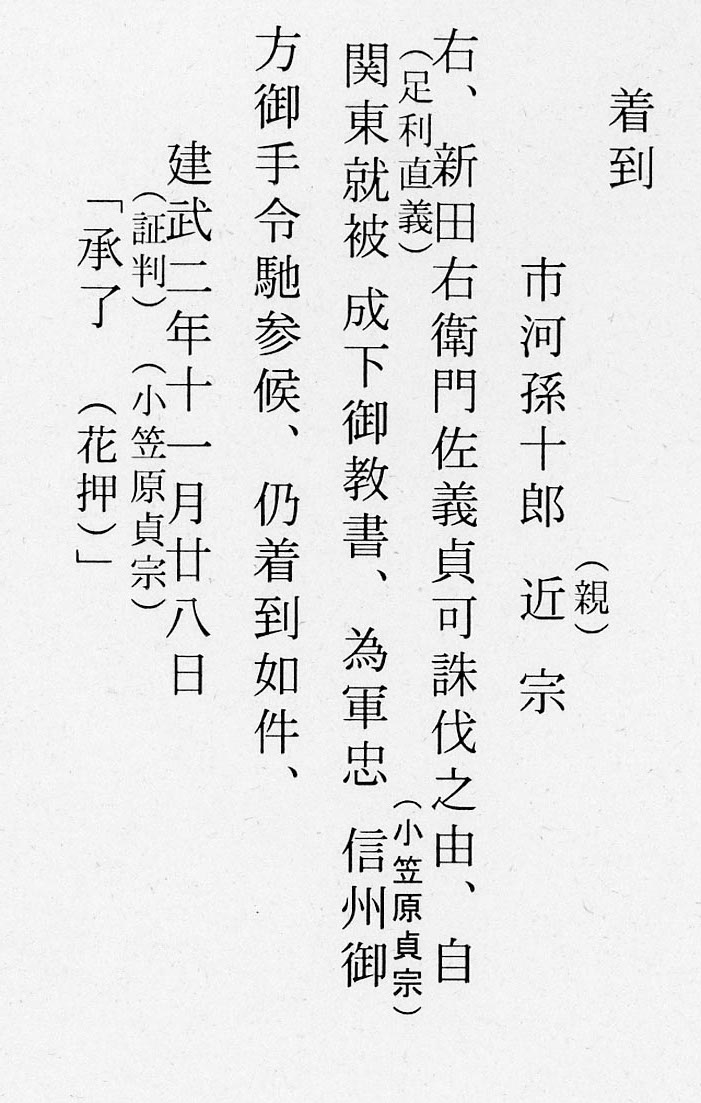 着到
(親)
市河孫十郎 近 宗
右、新田右衛門佐義貞可誅伐之由、自
(足利直義) (小笠原貞宗)
関東就被 成下御教書、為軍忠 信州御
方御手令馳参候、仍着到如件、
建武二年十一月廿八日
(証判) (小笠原貞宗)
「承了 (花押)」